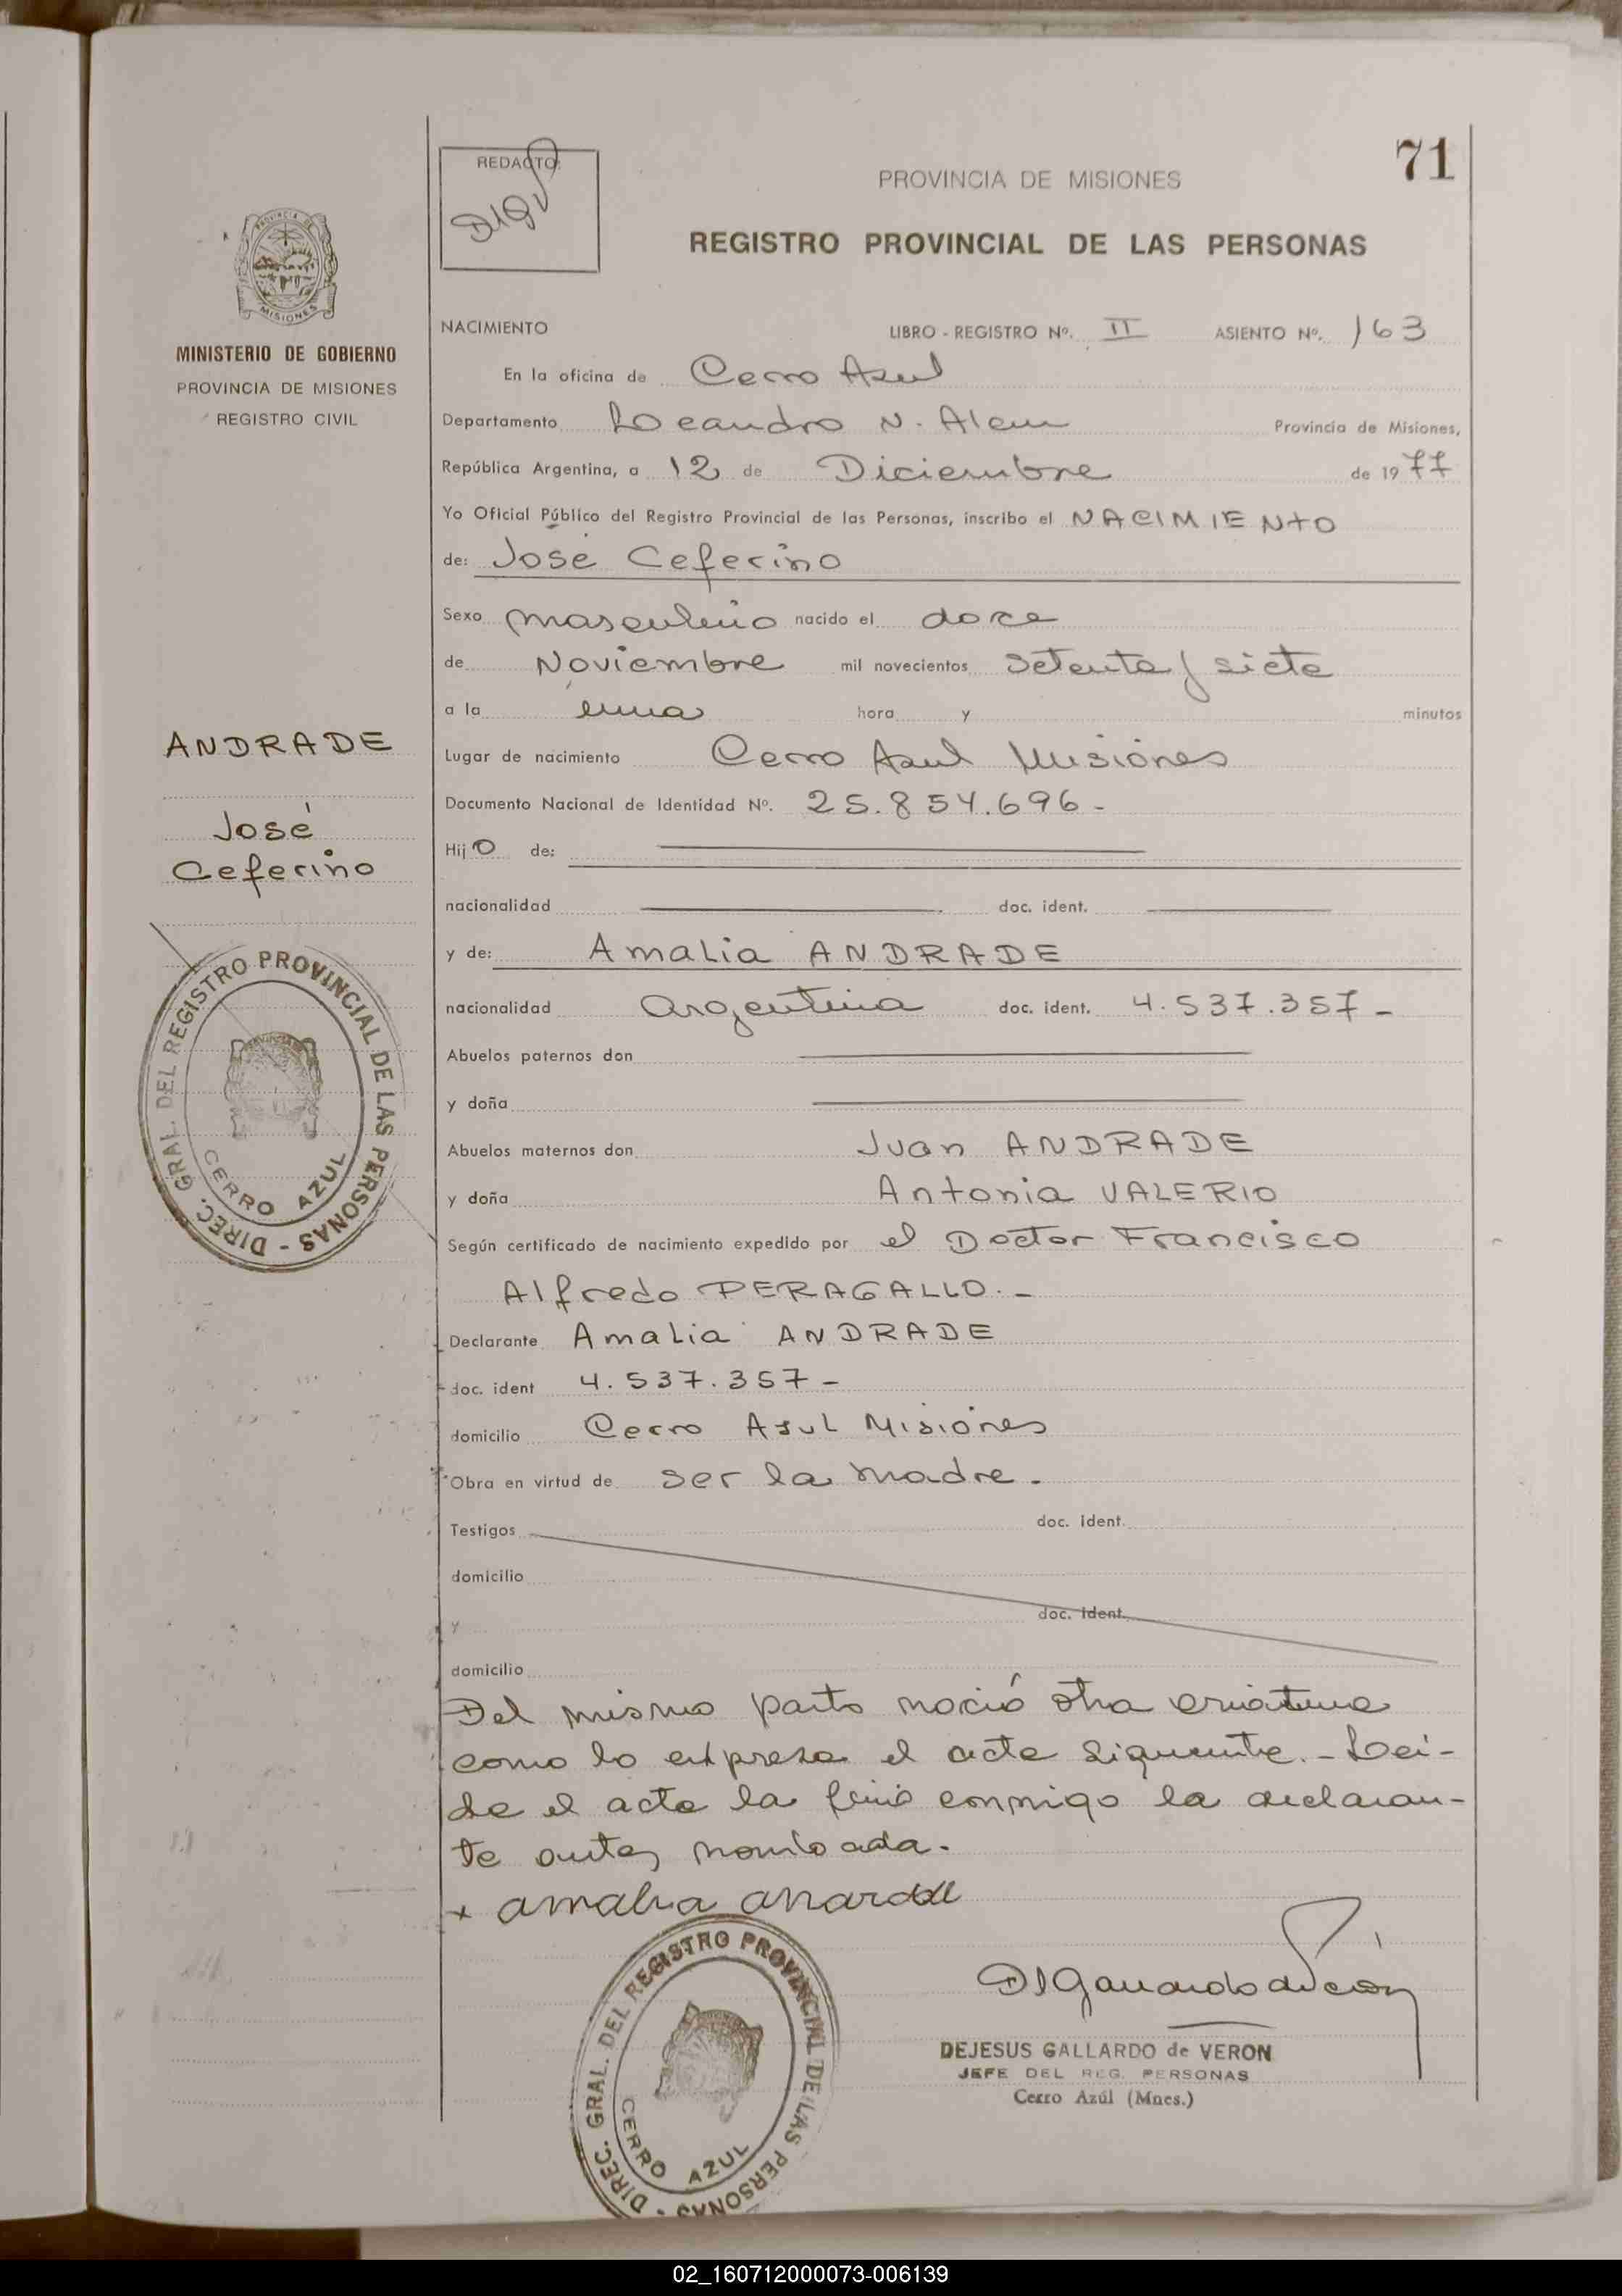 71
REDACTO:
DIGV
PROVINCIA DE MISIONES
REGISTRO PROVINCIAL DE LAS PERSONAS
MISIONES
MINISTERIO DE GOBIERNO
PROVINCIA DE MISIONES
REGISTRO CIVIL
ANDRADE
José
Ceferino
DIREC. GRAL. DEL REGISTRO PROVINCIAL DE LAS PERSONAS -
CERRO AZUL
NACIMIENTO LIBRO - REGISTRO Nº. II ASIENTO Nº. 163
En la oficina de Cerro Azul
Departamento Leandro N. Alem Provincia de Misiones,
República Argentina, a 12 de Diciembre de 1977
Yo Oficial Público del Registro Provincial de las Personas, inscribo el NACIMIENTO
de: José Ceferino
Sexo masculino nacido el doce
de Noviembre mil novecientos setenta y siete
a la una hora y minutos
Lugar de nacimiento Cerro Azul Misiones
Documento Nacional de Identidad Nº. 25.854.696-
Hijo de:
nacionalidad doc. ident.
y de: Amalia ANDRADE
nacionalidad Argentina doc. ident. 4.537.357-
Abuelos paternos don
y doña
Abuelos maternos don Juan ANDRADE
y doña Antonia VALERIO
Según certificado de nacimiento expedido por el Doctor Francisco
Alfredo PERAGALLO.-
Declarante Amalia ANDRADE
doc. ident 4.537.357-
domicilio Cerro Azul Misiones
Obra en virtud de ser la madre.
Testigos doc. ident.
domicilio
y doc. ident.
domicilio
Del mismo parto nació otra criatura
como lo expresa el acta siguiente.- Lei-
da el acta la firma conmigo la declaran-
te antes nombrada.
x amalia
DIREC. GRAL. DEL REGISTRO PROVINCIAL DE LAS PERSONAS -
CERRO AZUL
DIGallardo de Veron
DEJESUS GALLARDO de VERON
JEFE DEL REG. PERSONAS
Cerro Azúl (Mnes.)
02_160712000073-006139